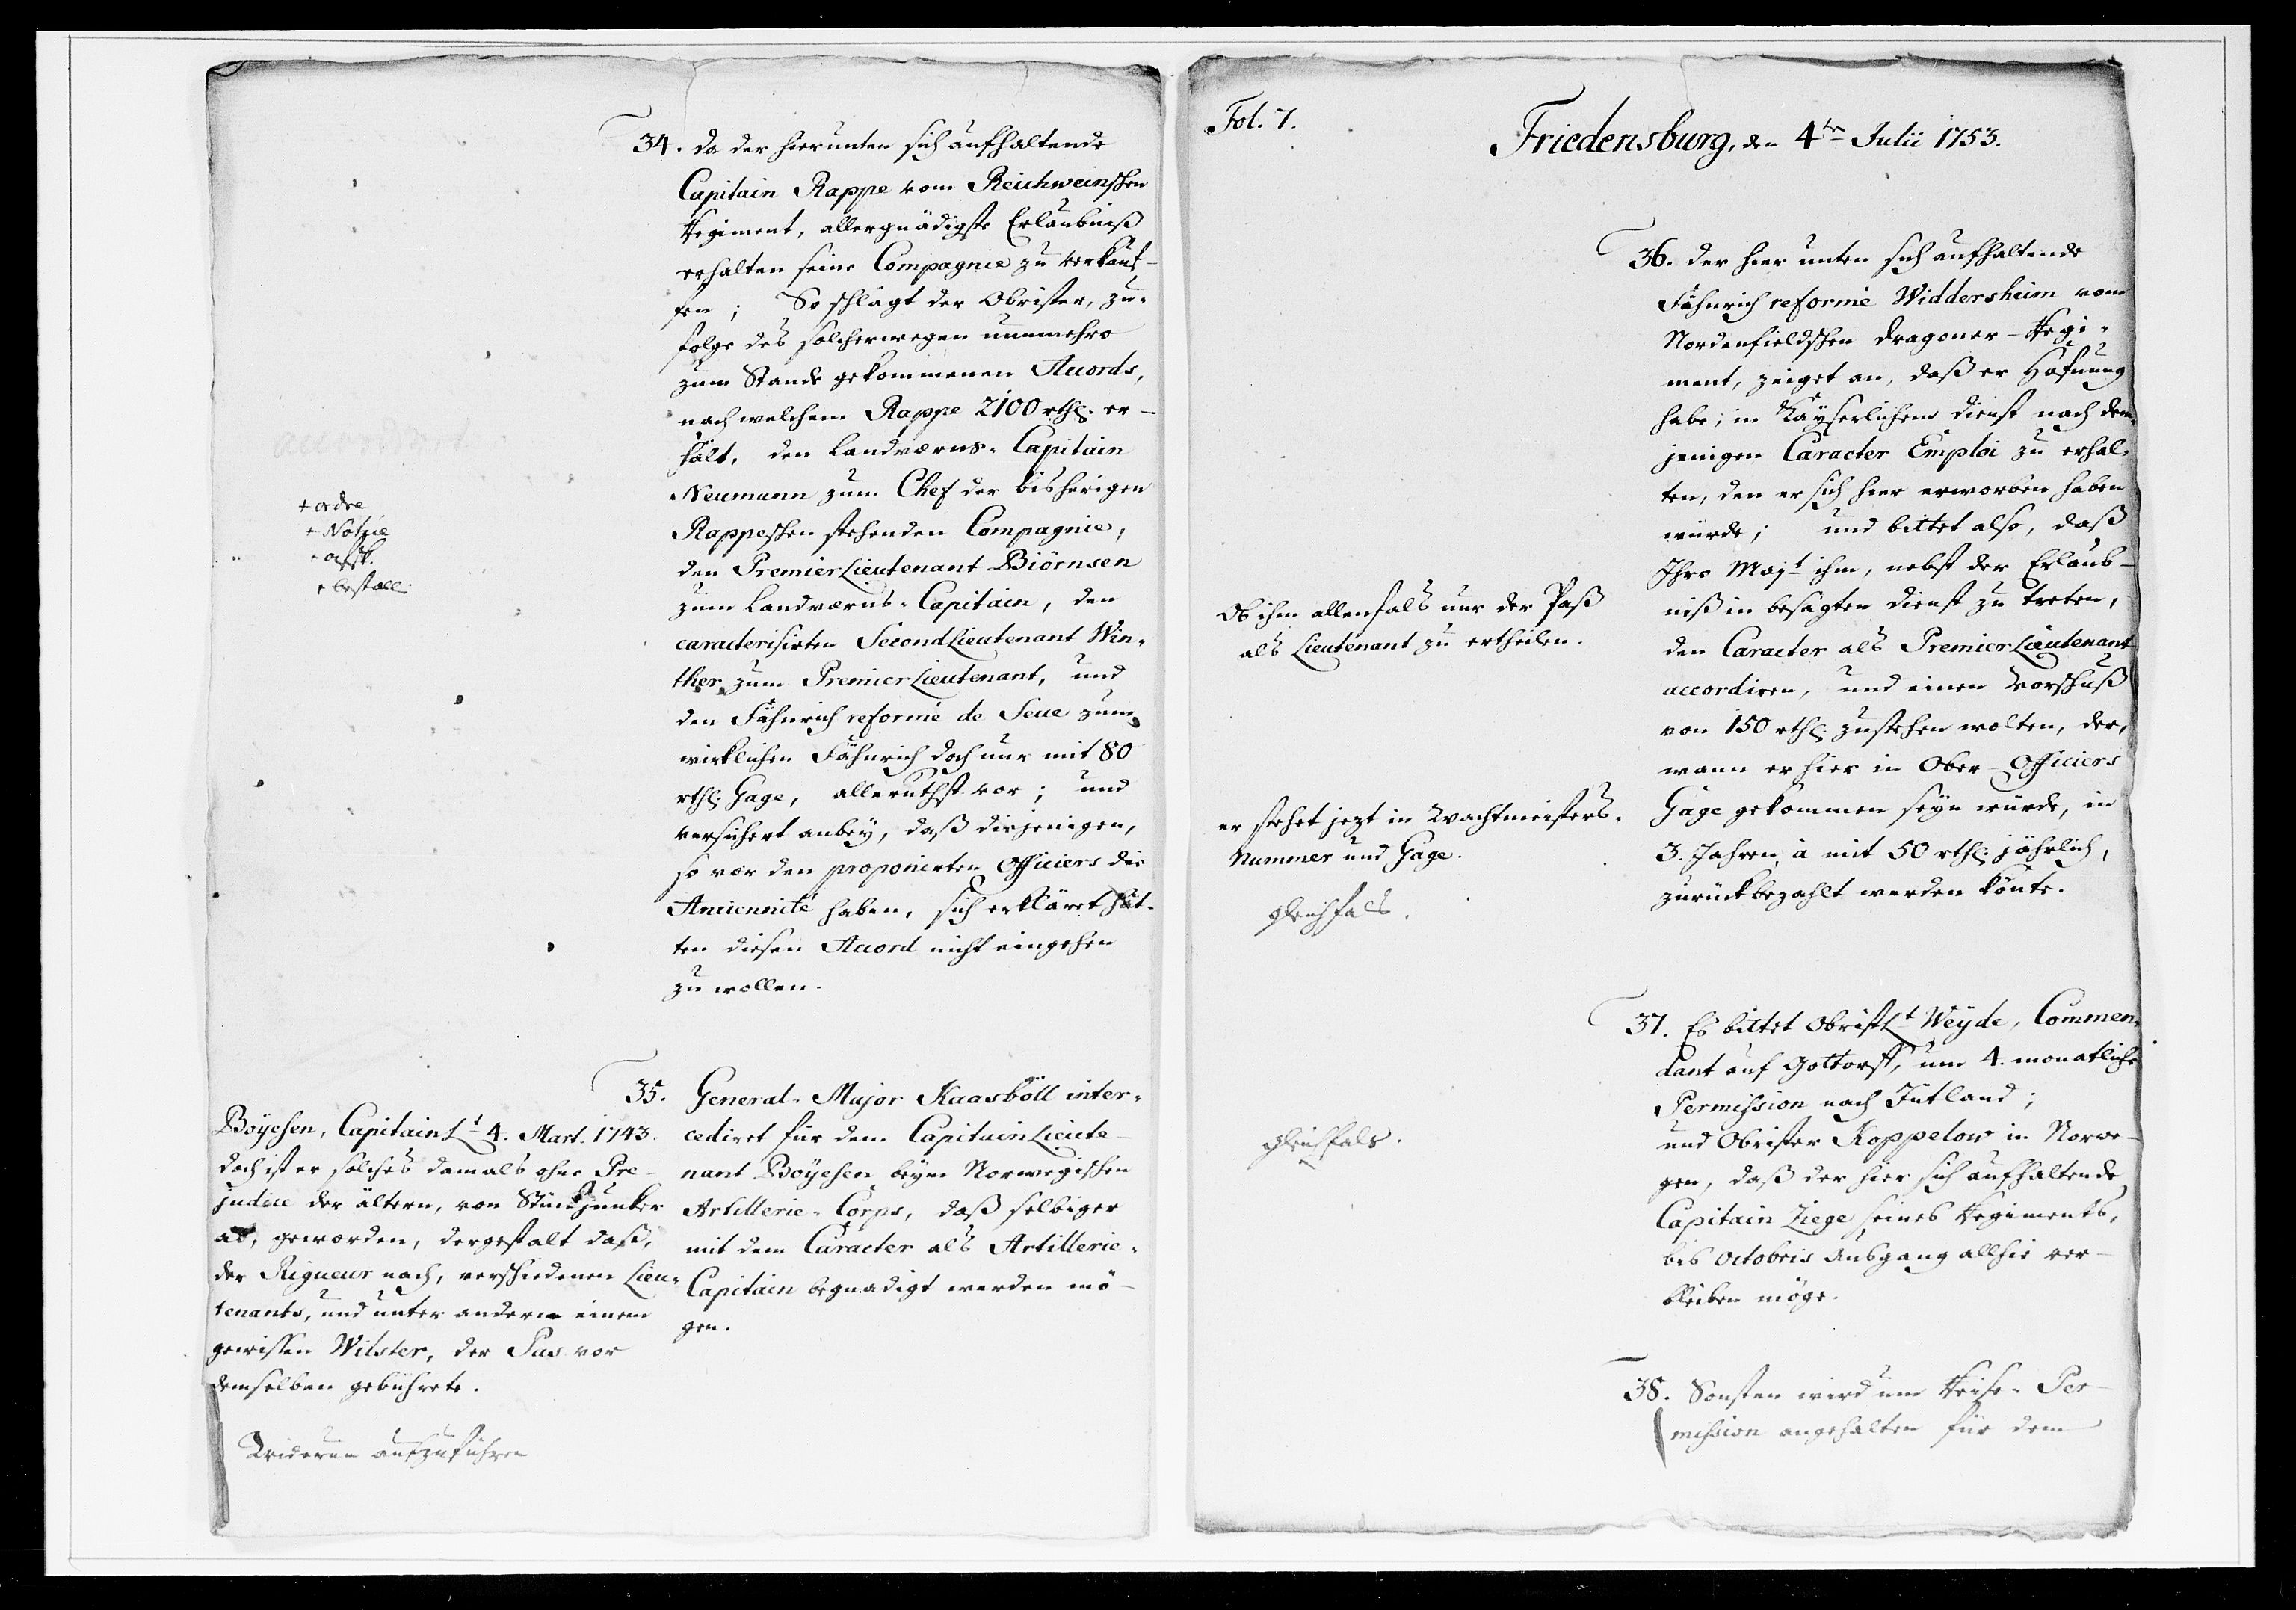 34. da der hierunten sich aufhaltende
Capitain Rappe vom Reichweinschen
Regiment, allergnädigste Erlaubniß
erhalten seine Compagnie zu verkauf-
fen; So schlägt der Obrister, zu-
folge des solcherwegen nunmehro
zum Stande gekommenen Accords,
nach welchem Rappe 2100 rthl. er-
hält, den Landværns-Capitain
Neumann zum Chef der bisherigen
Rappeschen stehenden Compagnie,
den PremierLieutenant Biörnsen
zum Landværns-Capitain, den
caracterisirten SecondLieutenant Win-
ther zum PremierLieutenant, und
den Fähnrich reformé de Seue zum
wirklichen Fähnrich doch nur mit 80
rthl. Gage, alleruthst vor; und
versichert anbey, daß diejenigen,
so vor den proponirten Officiers die
Anciennité haben, sich erkläret hät-
ten diesen Accord nicht eingehen
zu wollen.
accordirt
+ ordre
+ Notzie
+ bestall.
35. General-Major Kaasböll inter-
cediret für dem CapitainLieute-
nant Boÿesen beym Norwegischen
Artillerie-Corps, daß selbiger
mit dem Caracter als Artillerie-
Capitain begnadigt werden mö-
gen.
Boÿesen, CapitainLt 4. Mart. 1743.
doch ist er solches damals ohne Pre-
judice der ältern, von Stückjunker
ab, geworden, dergestalt daß,
der Rigueur nach, verschiedenen Lieu-
tenants, und unter andern einem
gewissen Wilster, der Pas vor
demselben gebührete.
aufzuführen
Fol. 7.
Friedensburg, den 4ten Julii 1753.
36. der hier unten sich aufhaltende
Fähnrich reformé Widdersheim vom
Nordenfieldschen Dragoner-Regi-
ment, zeiget an, daß er Hofnung
habe, in Kayserlichem Dienst nach dem-
jenigen Caracter Emploi zu erhal-
ten, den er sich hier erworben haben
würde; und bittet also, daß
Ihro Majt ihm, nebst der Erlaub-
niß in besagten Dienst zu treten,
den Caracter als PremierLieutenant
accordiren, und einen Vorschuß
von 150 rthl. zustehen wolten, der,
wann er hier in Ober-Officiers
Gage gekommen seyn würde, in
3. Jahren à mit 50 rthl. jährlich,
zurückbezahlt werden könte.
Ob ihm allenfals nur der Paß
als Lieutenant zu ertheilen.
er stehet jezt in Wachtmeisters-
Nummer und Gage.
gleichfals.
37. Es bittet ObristLt Weyde, Commen-
dant auf Gottorff, um 4. monatliche
Permission nach Jütland;
und Obrister Koppelow in Norwe-
gen, daß der hier sich aufhaltende
Capitain Ziege seines Regiments,
bis Octobris Ausgang allhie ver-
bleiben möge.
gleichfals.
38. Sonsten wird um Reise-Per-
mission angehalten für dem